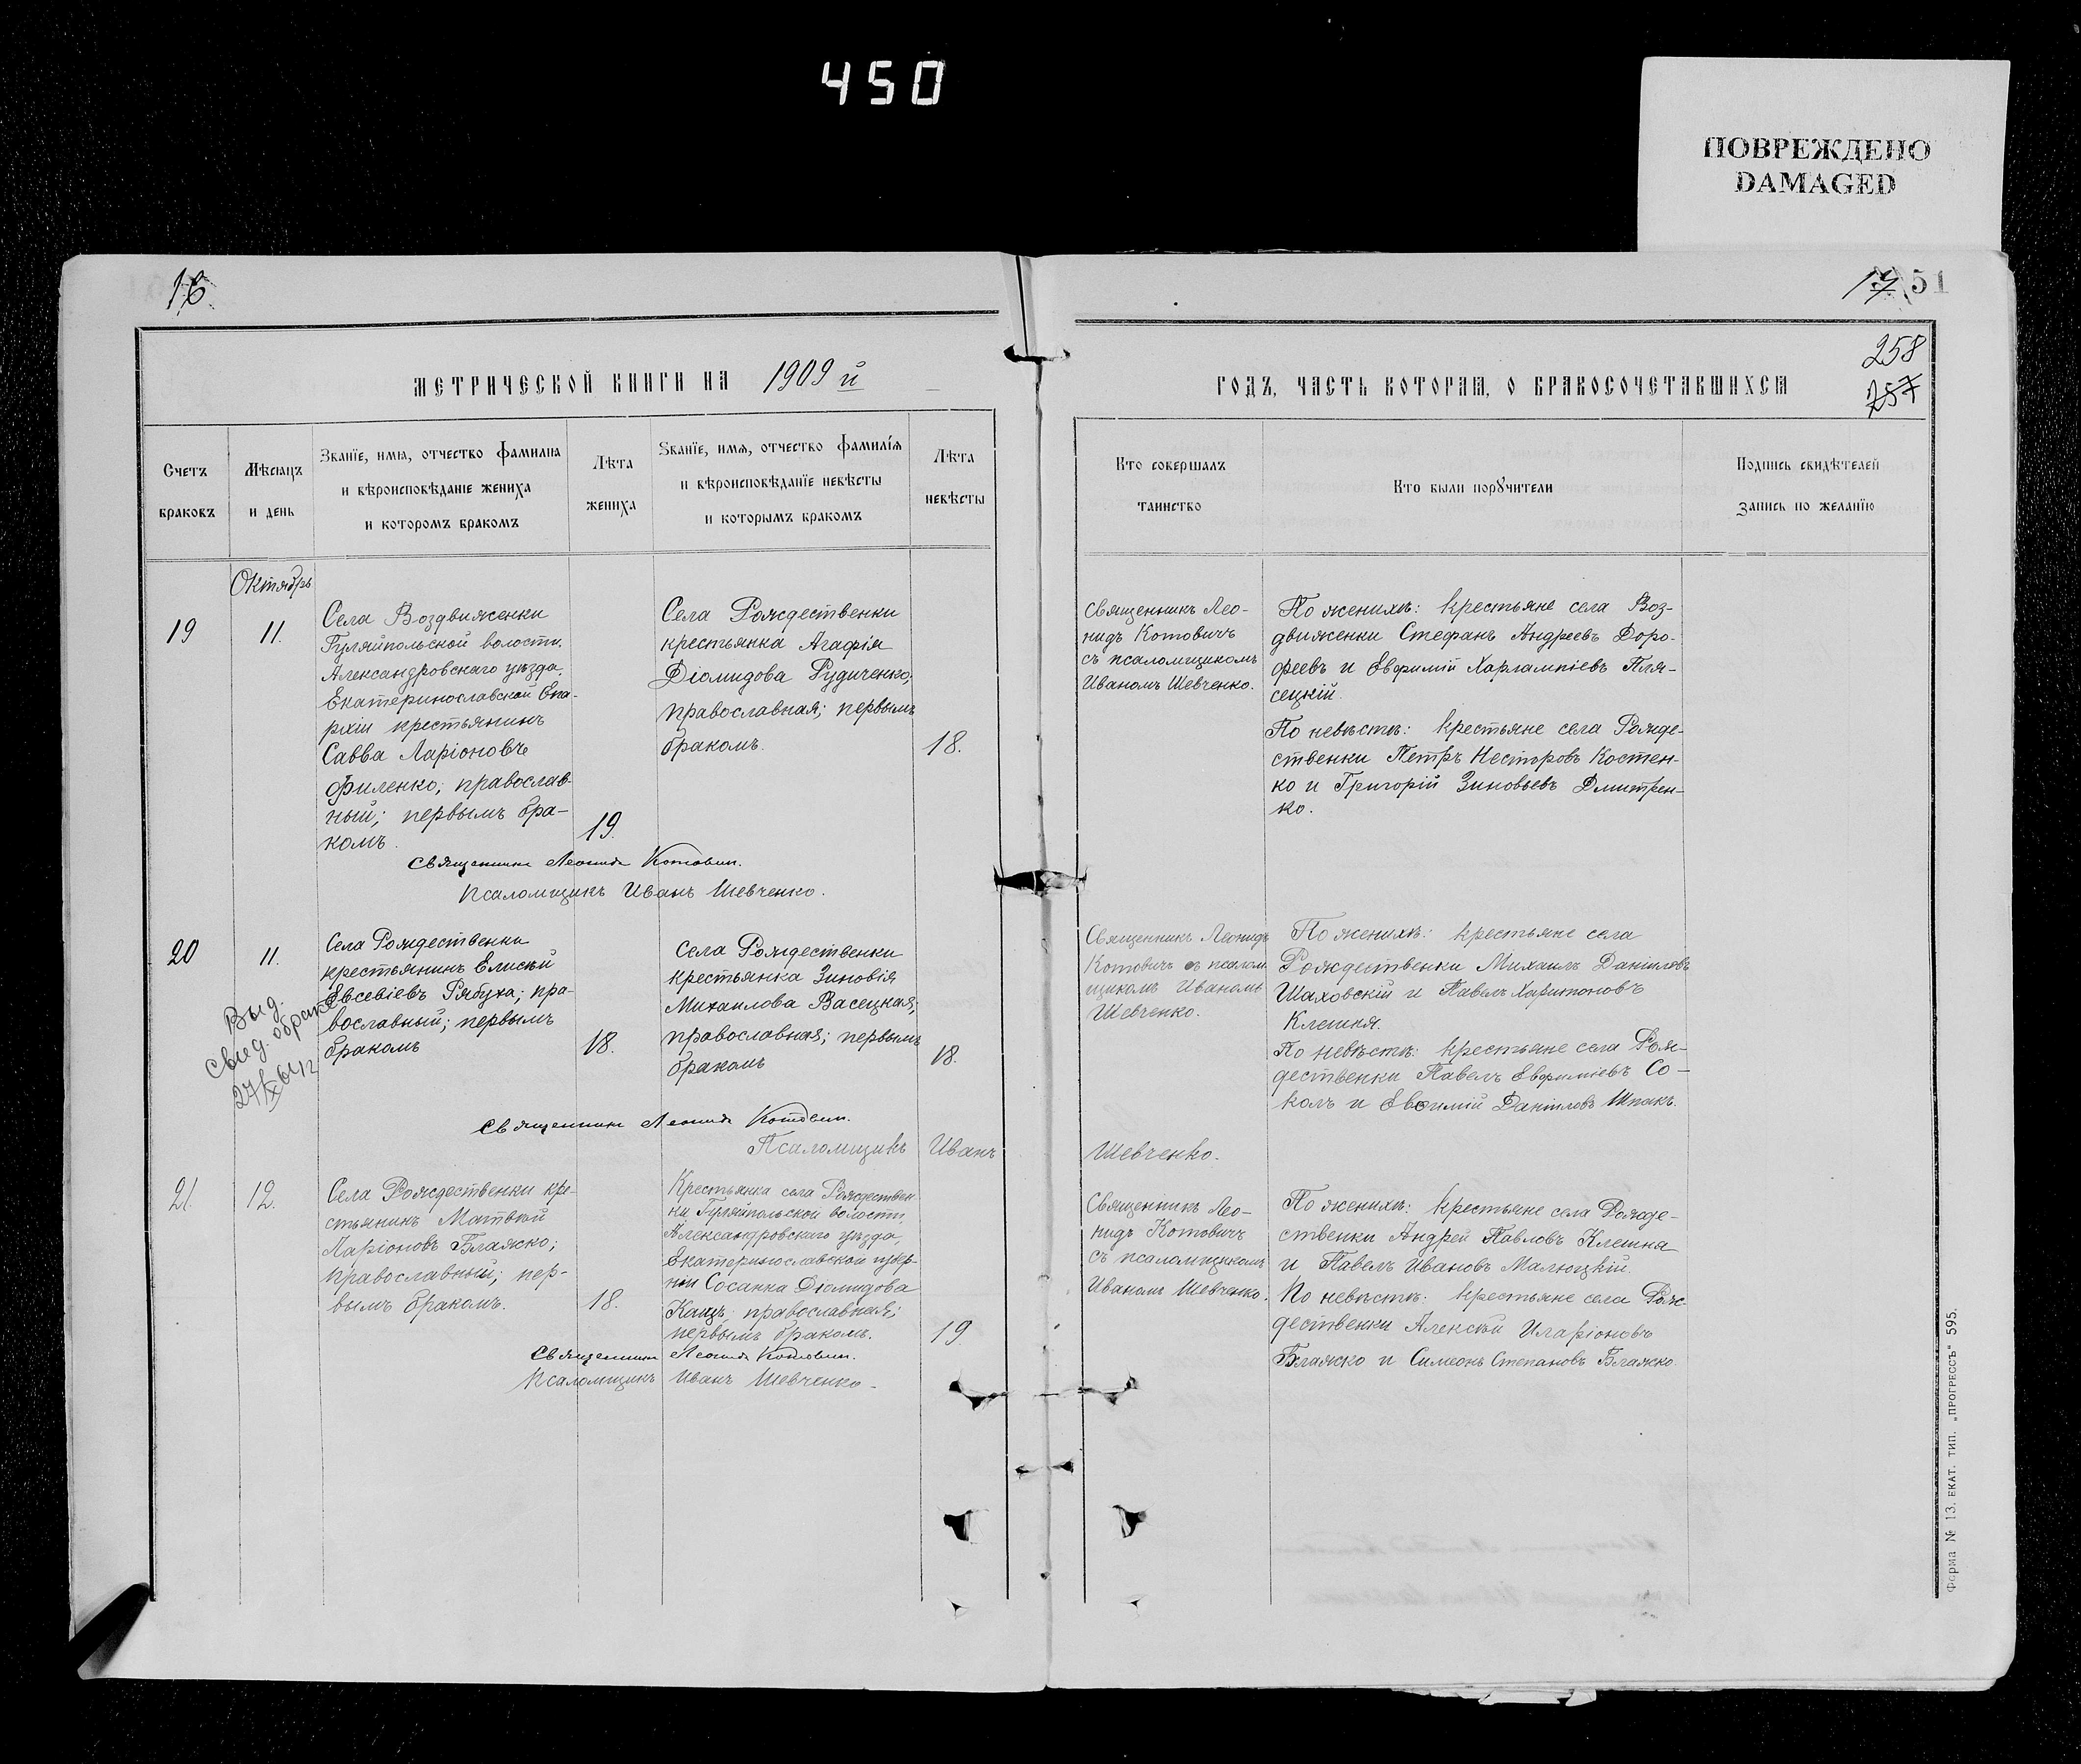 450
ПОВРЕЖДЕНО
DAMAGED
16
51
258
257
МЕТРИЧЕСКОЙ КНИГИ НА 1909 й
ГОДЪ, ЧАСТЬ ВТОРАЯ, О БРАКОСОЧЕТАВШИХСЯ
Счетъ
браковъ
Мѣсяцъ
и день
Званїе, имя, отчество фамилиа
и вѣроисповѣданїе жениха
и которомъ бракомъ
Лѣта
жениха
Званїе, имя, отчество фамилїя
и вѣроисповѣданїе невѣсты
и которымъ бракомъ
Лѣта
невѣсты
Кто совершалъ
таинство
Кто были порꙋчители
Подпись свидѣтелей
запись по желанїю
Октябрь
19
11.
Села Воздвиженки
Гуляйпольской волости,
Александровскаго уѣзда,
Екатеринославской Епа-
рхіи крестьянинъ
Савва Ларіоновъ
Филенко; православ-
ный; первымъ бра-
комъ.
19.
Села Рождественки
крестьянка Агафія
Діомидова Рудиченко,
православная; первымъ
бракомъ.
18.
Священникъ Лео-
нидъ Котовичъ
съ псаломщикомъ
Иваномъ Шевченко.
По женихѣ: крестьяне села Воз-
движенки Стефанъ Андреевъ Доро-
феевъ и Евфимій Харлампіевъ Пля-
сецкій.
По невѣстѣ: крестьяне села Рожде-
ственки Петръ Несторовъ Костен-
ко и Григорій Зиновьевъ Дмитрен-
ко.
Священникъ Леонидъ Котович.
Псаломщикъ Иванъ Шевченко.
20
11.
Выд.
свид. о бракѣ
Села Рождественки
крестьянинъ Елисѣй
Евсевіевъ Рябуха; пра-
вославный; первымъ
бракомъ
18.
Села Рождественки
крестьянка Зиновія
Михаилова Васецкая,
православная; первымъ
бракомъ
18.
Священникъ Леонидъ
Котовичъ съ псалом-
щикомъ Иваномъ
Шевченко.
По женихѣ: крестьяне села
Рождественки Михаилъ Даніиловъ
Шаховскій и Павелъ Харитоновъ
Клешня.
По невѣстѣ: крестьяне села Рож-
дественки Павелъ Евфиміевъ Со-
колъ и Евфимій Даніиловъ Шпакъ.
Священникъ Леонидъ Котович.
Псаломщикъ Иванъ Шевченко.
21.
12.
Села Рождественки кре-
стьянинъ Матвѣй
Ларіоновъ Блажко;
православный; пер-
вымъ бракомъ.
18.
Крестьянка села Рождествен-
ки Гуляйпольской волости,
Александровскаго уѣзда,
Екатеринославской губер-
ніи Сосанна Діомидова
Кацъ; православная;
первымъ бракомъ.
19.
Священникъ Лео-
нидъ Котовичъ
съ псаломщикомъ
Иваномъ Шевченко.
По женихѣ: крестьяне села Рожде-
ственки Андрей Павловъ Клешня
и Павелъ Ивановъ Малюцкій.
По невѣстѣ: крестьяне села Рож-
дественки Алексѣй Иларіоновъ
Блажко и Симеонъ Степановъ Блажко.
Священникъ Леонидъ Котович.
Псаломщикъ Иванъ Шевченко.
Форма № 13. ЕКАТ. ТИП. „ПРОГРЕССЪ“ 595.